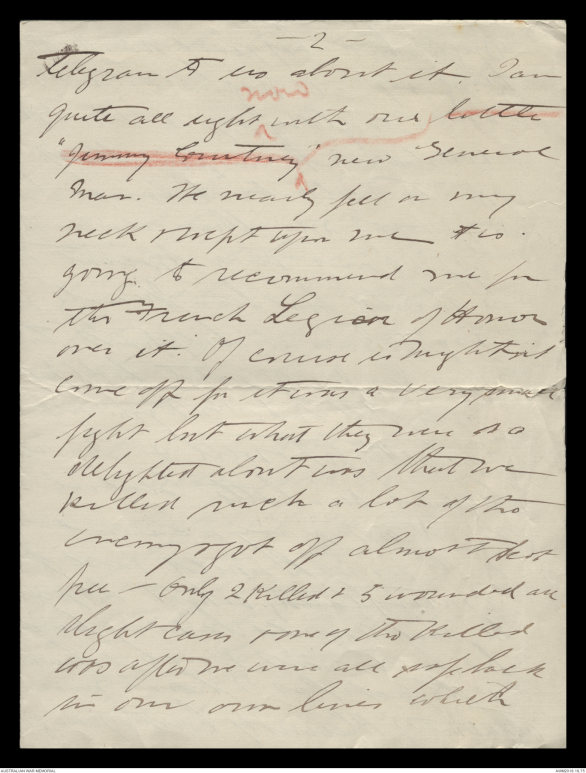 - 2 -
telegram to us about it. I am
now
quite all right with our little
"Jimmy Courtney" new General
man. He nearly fell on my
neck & wept upon me & is
going to recommend me for
the French Legion of Honor
over it. Of course it mightnt
come off for it was a very small
fight but what they were so
delighted about was that we
killed such a lot of the
enemy & got off almost scot
free - only 2 killed & 5 wounded all
slight cases & one of the killed
was after we were all safe back
in our own lines which
AUSTRALIAN WAR MEMORIAL